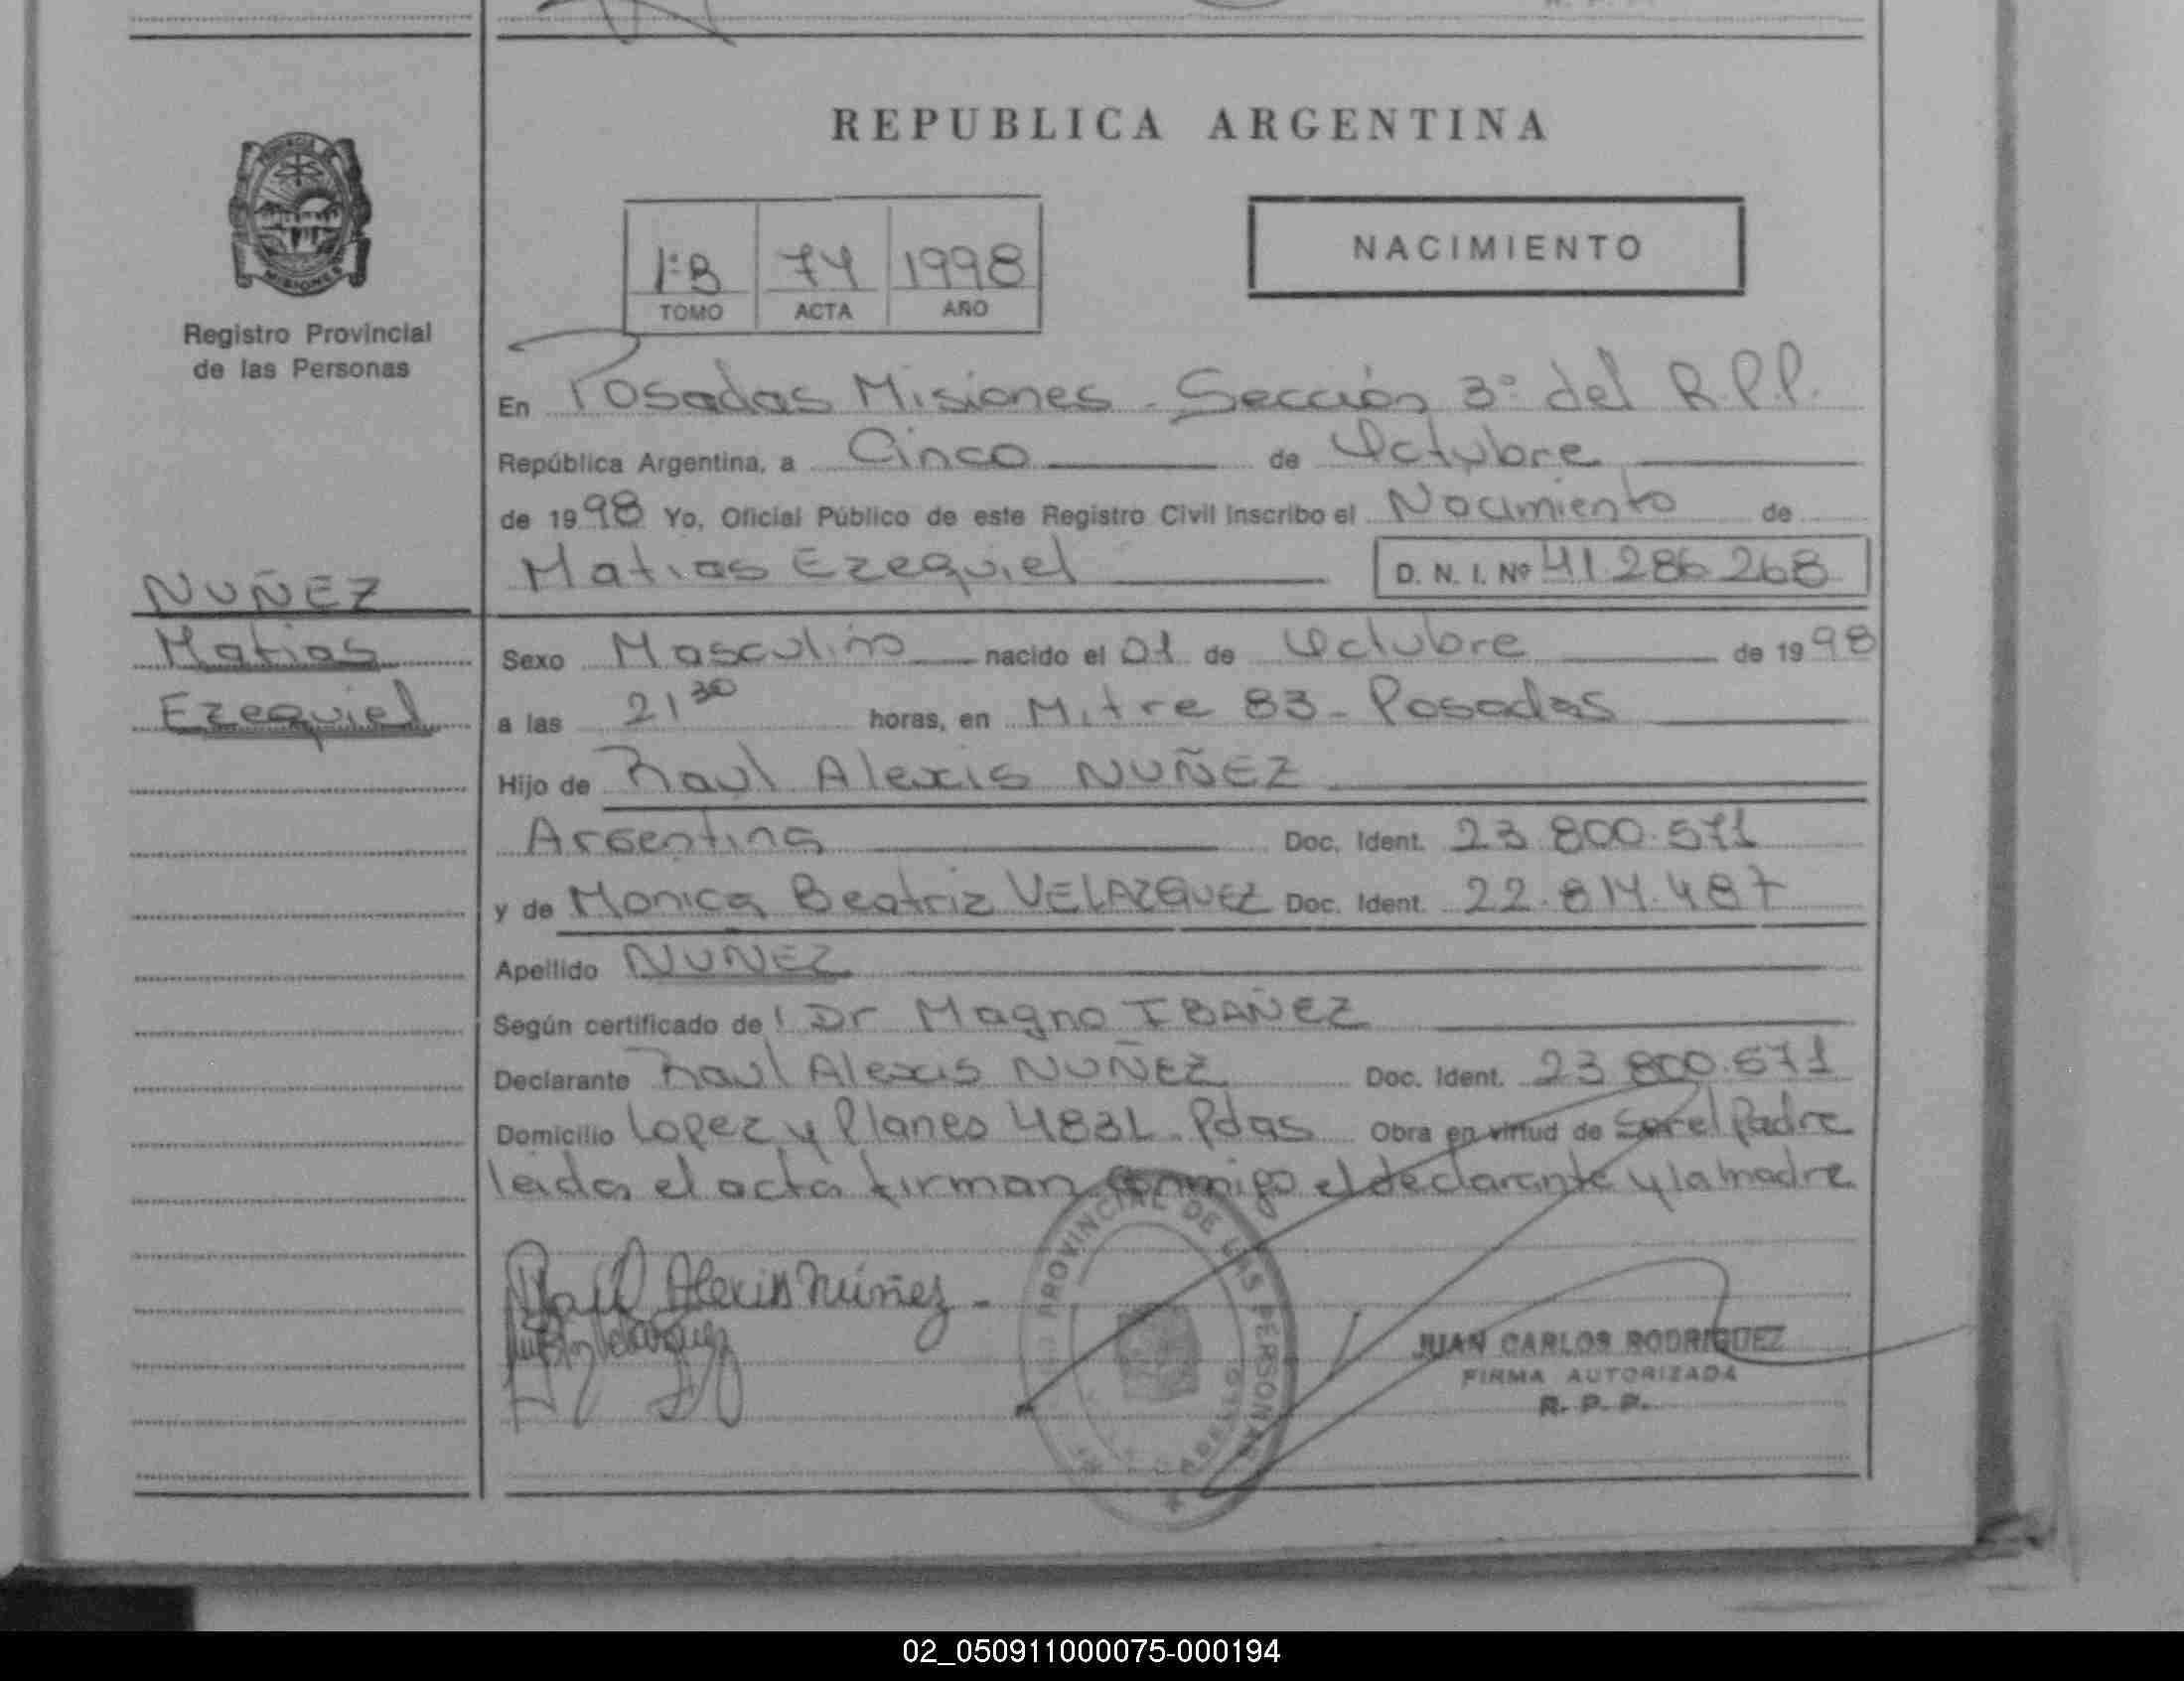 REPUBLICA ARGENTINA
NACIMIENTO
1:B 74 1998
TOMO ACTA AÑO
Registro Provincial
de las Personas
En Posadas Misiones - Sección 3º del R.P.P.
República Argentina, a Cinco de Octubre
de 1998 Yo, Oficial Público de este Registro Civil inscribo el Nacimiento de
Matias Ezequiel D. N. I. Nº 41.286.268
NUÑEZ
Matias
Ezequiel
Sexo Masculino nacido el 01 de Octubre de 1998
a las 21 30 horas, en Mitre 83 - Posadas
Hijo de Raul Alexis NUÑEZ
Argentina Doc. Ident. 23.800.571
y de Monica Beatriz VELAZQUEZ Doc. Ident. 22.814.487
Apellido NUÑEZ
Según certificado de: Dr Magno IBAÑEZ
Declarante Raul Alexis NUÑEZ Doc. Ident. 23.800.571
Domicilio Lopez y Planes 4831 - Pdas Obra en virtud de Ser el Padre
leida el acta firman conmigo el declarante y la madre
Raúl Alexis Núñez -
Velazquez
PROVINCIAL DE LAS PERSONAS
JUAN CARLOS RODRIGUEZ
FIRMA AUTORIZADA
R. P. P.
02_050911000075-000194